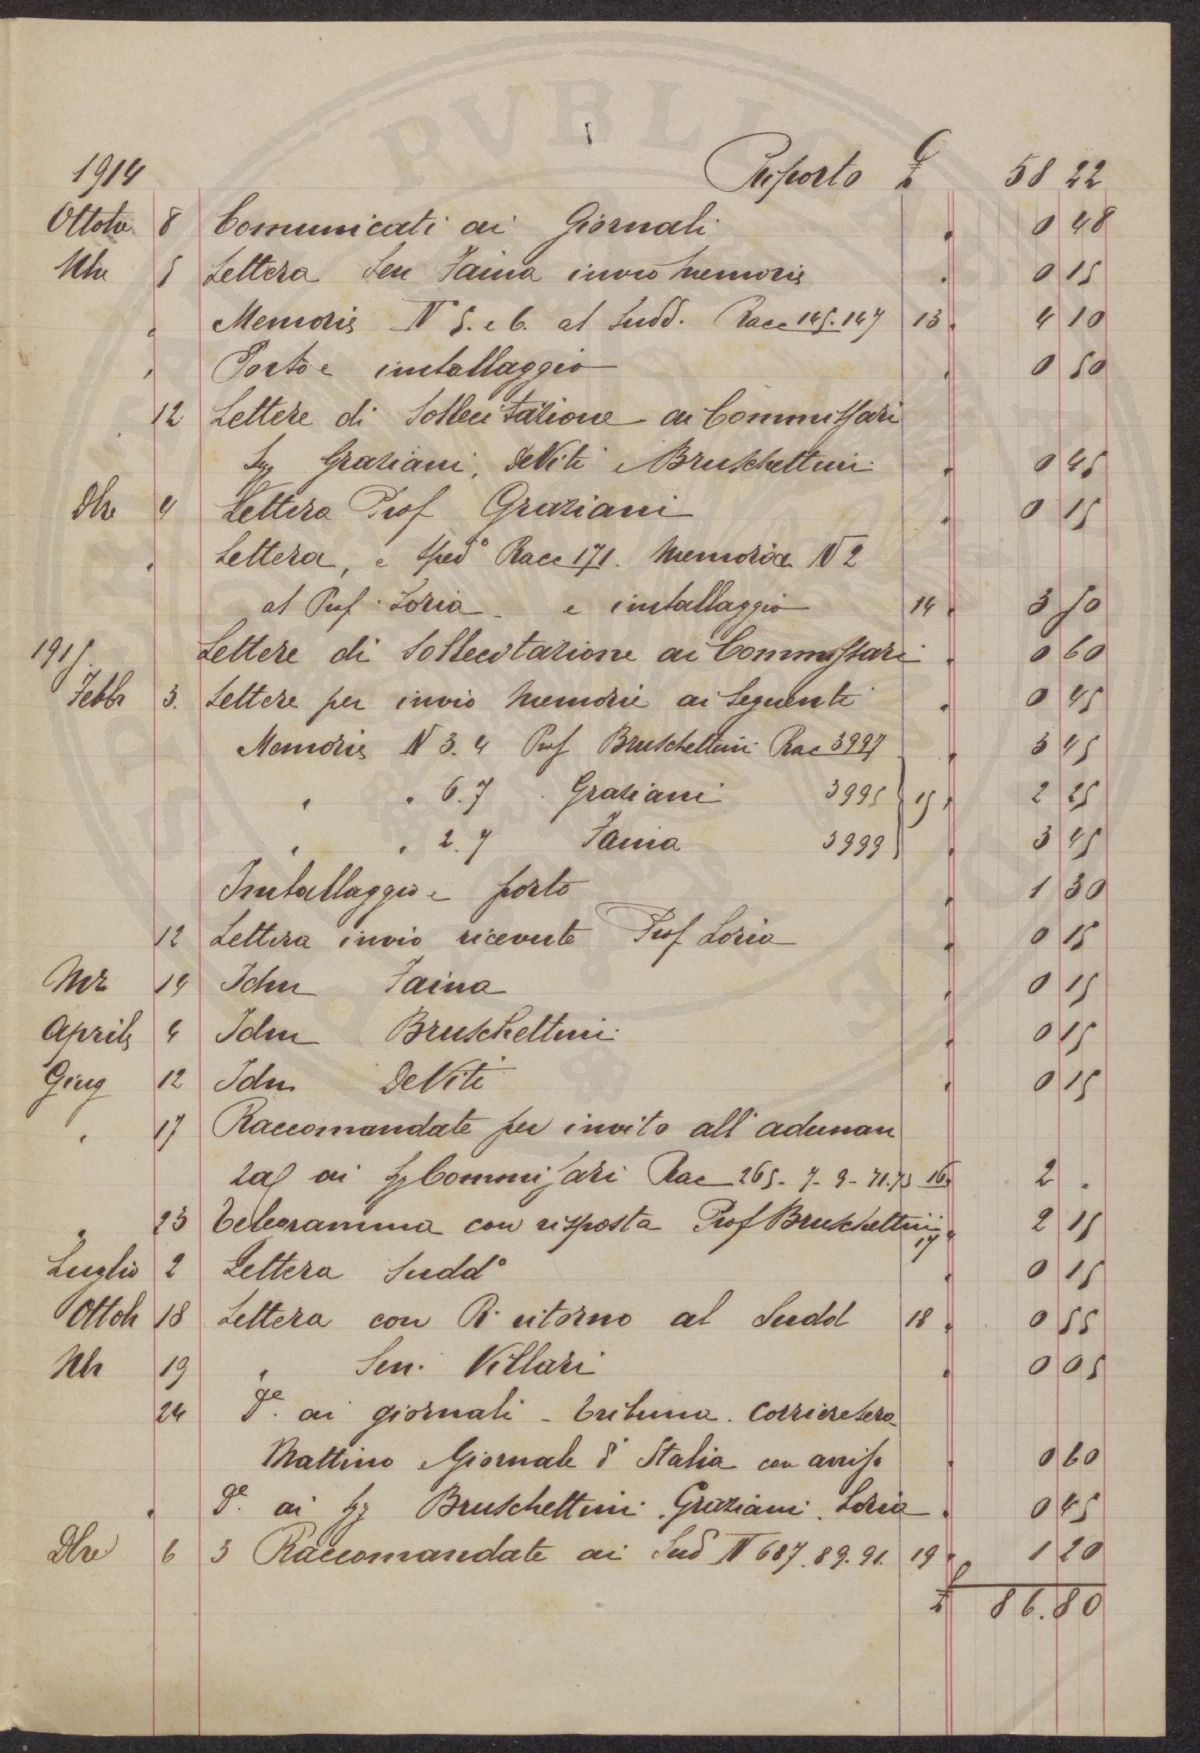 1914 Riporto £ 58 22
Ottobre 8 Comunicati ai Giornali " 0 48
Nbre 5 Lettera Sen Faina invio memorie " 0 15
" Memorie N 5. e 6. al Sudd. Racc 145.147 13 " 4 10
" Porto e imballaggio " 0 50
12 Lettere di Sollecitazione ai Commissari
Sigg Graziani, DeViti e Bruschettini " 0 45
Dbre 4 Lettera Prof Graziani " 0 15
" Lettera, e sped° Racc 171. Memoria N 2
al Prof. Loria e imballaggio 14 " 3 50
1915 Lettere di Sollecitazione ai Commissari " 0 60
Febbr 3. Lettere per invio memorie ai Seguenti " 0 45
Memorie N 3. 4 Prof Bruschettini Rac 3997 " 3 45
" " 6. 7 " Graziani 3995 15 " 2 25
" " 2. 7 Faina 3999 " 3 45
Imballaggio e porto " 1 30
12 Lettera invio ricevute Prof Loria " 0 15
Mrz 14 Idem Faina " 0 15
Aprile 4 Idm Bruschettini " 0 15
Giug 12 Idm DeViti " 0 15
" 17 Raccomandate per invito all'adunan
za ai Sigg Commissari Rac 265- 7- 9- 71.73 16 " 2 .
" 23 Telegramma con risposta Prof Bruschettini 17 " 2 15
Luglio 2 Lettera Sudd° " 0 15
Ottob 18 Lettera con R. ritorno al Sudd 18 " 0 55
Nbr 19 " Sen. Villari " 0 05
24 d°. ai giornali - Tribuna. Corrieresera
Mattino e Giornale d'Italia con avviso " 0 60
" d°. ai Sigg Bruschettini. Graziani. Loria " 0 45
Dbre 6 3 Raccomandate ai Sud N 687. 89. 91. 19 " 1 20
£ 86.80